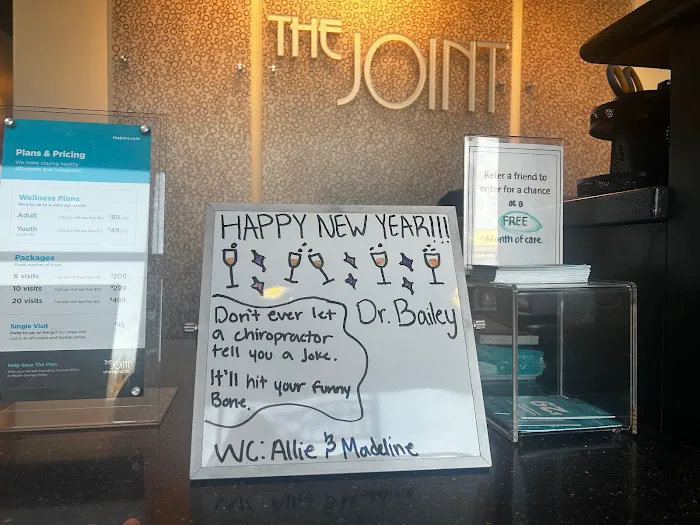 THE JOINT
thejoint.com
Plans & Pricing
We make staying healthy
affordable and convenient.
Wellness Plans
Receive up to 4 visits per month.
Adult $89
Youth $49
Packages
6 visits $209
10 visits $299
20 visits $499
Single Visit $45
Help Ease The Pain
THE JOINT
chiropractic
HAPPY NEW YEAR!!!
Dr. Bailey
Don't ever let
a chiropractor
tell you a joke.
It'll hit your funny
Bone.
WC: Allie & Madeline
Refer a friend to
enter for a chance
at a
FREE
Month of care.